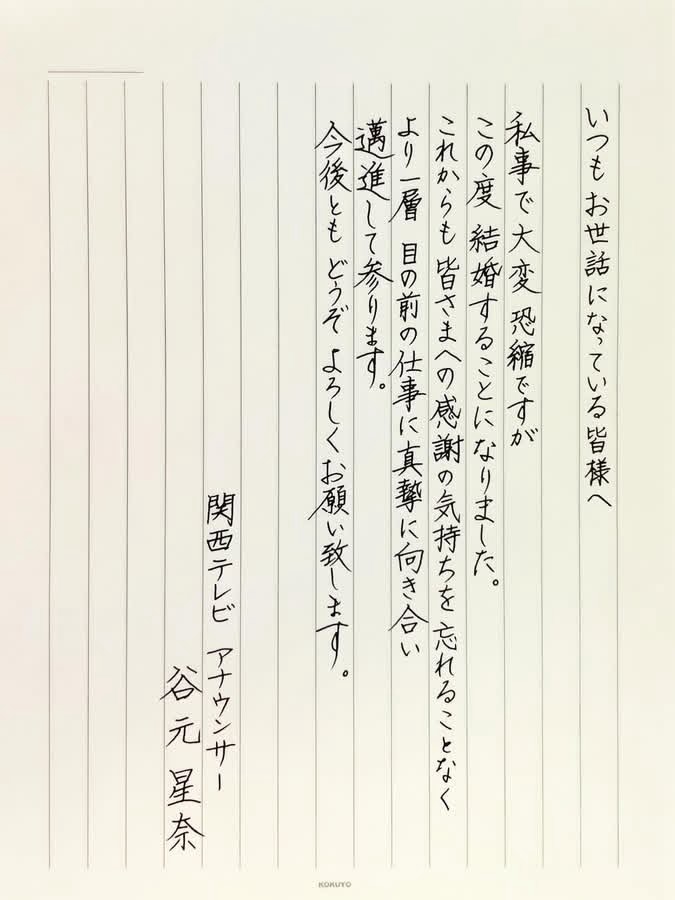 いつもお世話になっている皆様へ
私事で大変恐縮ですが
この度 結婚することになりました。
これからも 皆さまへの感謝の気持ちを 忘れることなく
より一層 目の前の仕事に真摯に向き合い
邁進して参ります。
今後とも どうぞ よろしくお願い致します。
関西テレビ アナウンサー
谷元 星奈
KOKUYO